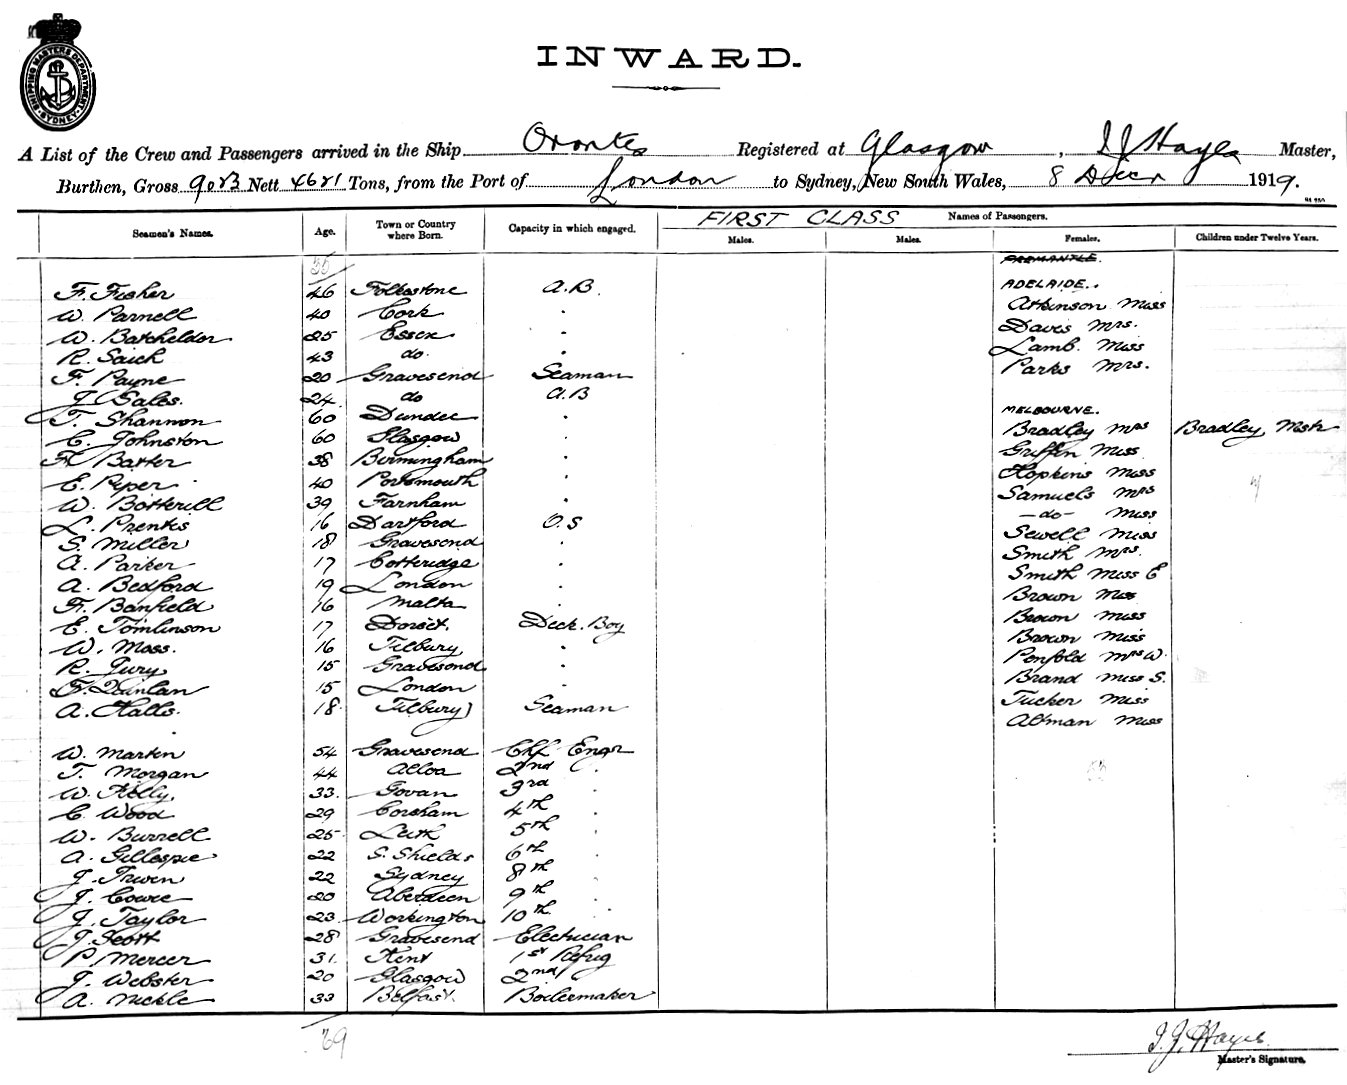 SHIPPING MASTERS DEPARTMENT SYDNEY
INWARD.
A List of the Crew and Passengers arrived in the Ship Orontes Registered at Glasgow, I J Hayes Master,
Burthen, Gross 9023 Nett 4621 Tons, from the Port of London to Sydney, New South Wales, 8 Decr 1919.
FIRST CLASS Names of Passengers.
Seamen's Names. Age. Town or Country where Born. Capacity in which engaged. Males. Males. Females. Children under Twelve Years.
FREMANTLE.
F. Fisher 46 Folkestone A.B. ADELAIDE.
W. Parnell 40 Cork " Atkinson Miss
W. Batcheldor 25 Essex " Davis Mrs.
R. Saich 43 do. " Lamb. Miss
F. Payne 20 Gravesend Seaman Parks Mrs.
J. Sales. 24 do A.B
T. Shannon 60 Dundee " MELBOURNE.
C. Johnston 60 Glasgow " Bradley Mrs Bradley Mstr
F. Baxter 38 Birmingham " Griffin Miss
E. Piper 40 Portsmouth " Hopkins Miss
W. Botterill 39 Farnham " Samuels Mrs
L. Prentis 16 Dartford O.S -do- Miss
S. Miller 18 Gravesend " Sewell Miss
A. Parker 17 Cotteridge " Smith Mrs.
A. Bedford 19 London " Smith Miss E
F. Banfield 16 Malta " Brown Miss
E. Tomlinson 17 Dorset. Deck Boy Brown Miss
W. Moss. 16 Tilbury " Brown Miss
R. Jury. 15 Gravesend " Penfold Mrs W.
F. Quinlan 15 London " Brand Miss S.
A. Halls. 18 Tilbury Seaman Tucker Miss
Altman Miss
W. Marten 54 Gravesend Chf Engr
T. Morgan 44 Alloa 2nd "
W. Kelly. 33 Govan 3rd "
C. Wood 29 Corsham 4th "
W. Burrell 25 Leith 5th "
A. Gillespie 22 S. Shields 6th "
J. Irwen 22 Sydney 8th "
J. Cowie 20 Aberdeen 9th "
J. Taylor 23 Workington 10th "
J. Scott 28 Gravesend Electrician
P. Mercer 31. Kent 1st Refrig
J. Webster 20 Glasgow 2nd
A. Nickle 33 Belfast. Boilermaker
I. J. Hayes
Master's Signature.